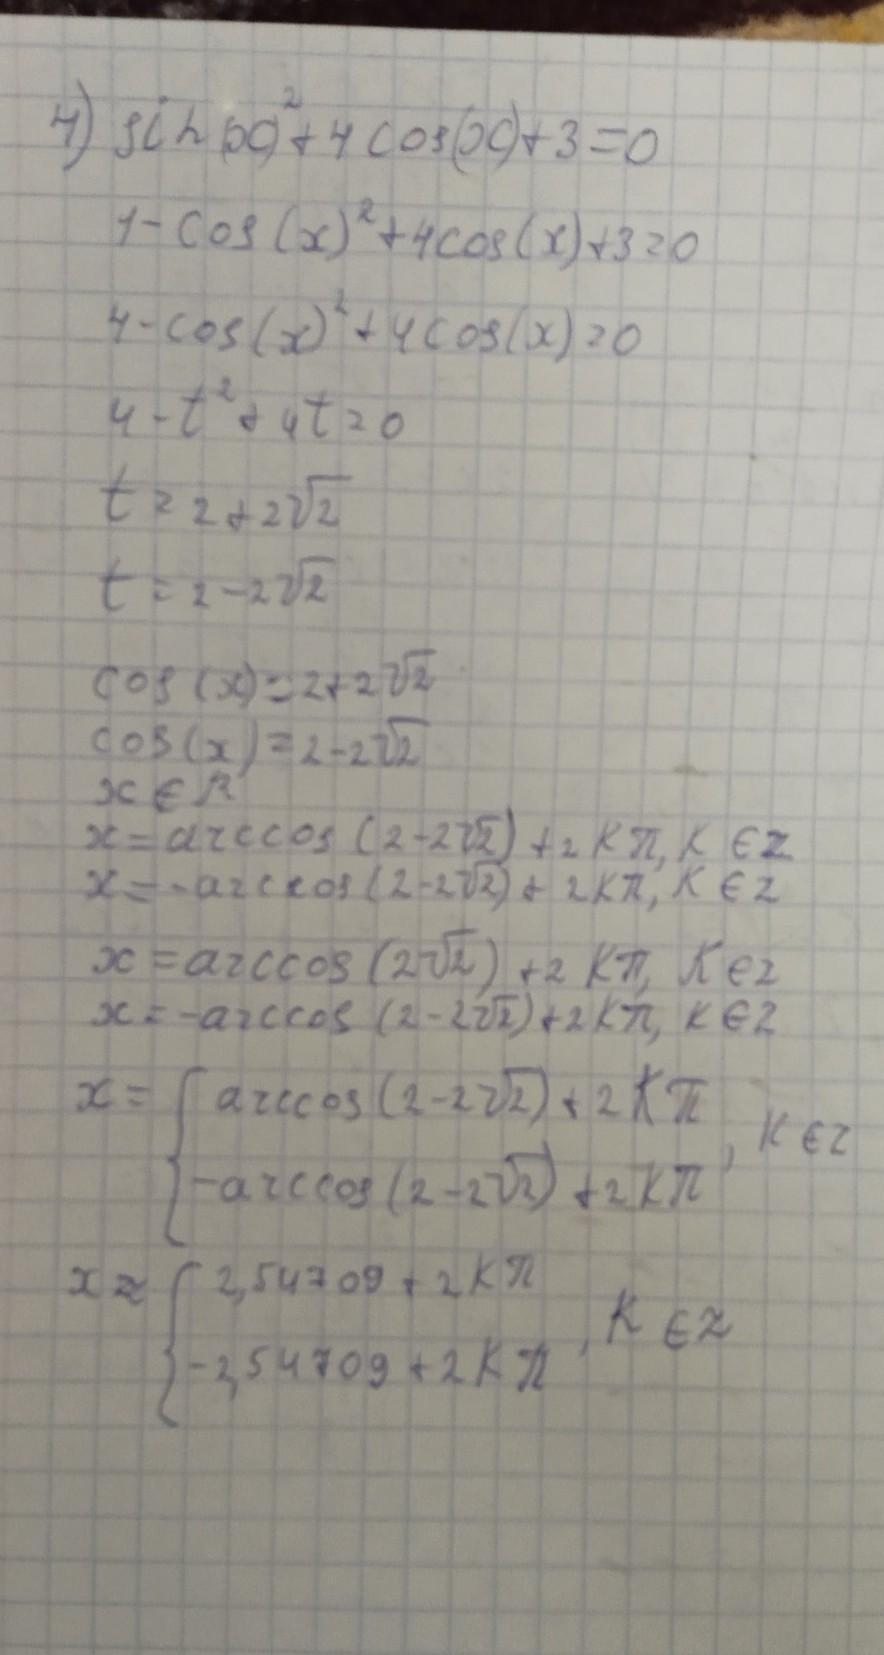 4) sin(x)² + 4cos(x) + 3 = 0
1 - cos(x)² + 4cos(x) + 3 = 0
4 - cos(x)² + 4cos(x) = 0
4 - t² + 4t = 0
t = 2 + 2√2
t = 2 - 2√2
cos(x) = 2 + 2√2
cos(x) = 2 - 2√2
x ∈ R
x = arccos(2 - 2√2) + 2kπ, k ∈ z
x = -arccos(2 - 2√2) + 2kπ, k ∈ z
x = arccos(2√2) + 2kπ, k ∈ z
x = -arccos(2 - 2√2) + 2kπ, k ∈ z
x = { arccos(2 - 2√2) + 2kπ
-arccos(2 - 2√2) + 2kπ , k ∈ z
x ≈ { 2,54709 + 2kπ
-2,54709 + 2kπ , k ∈ z